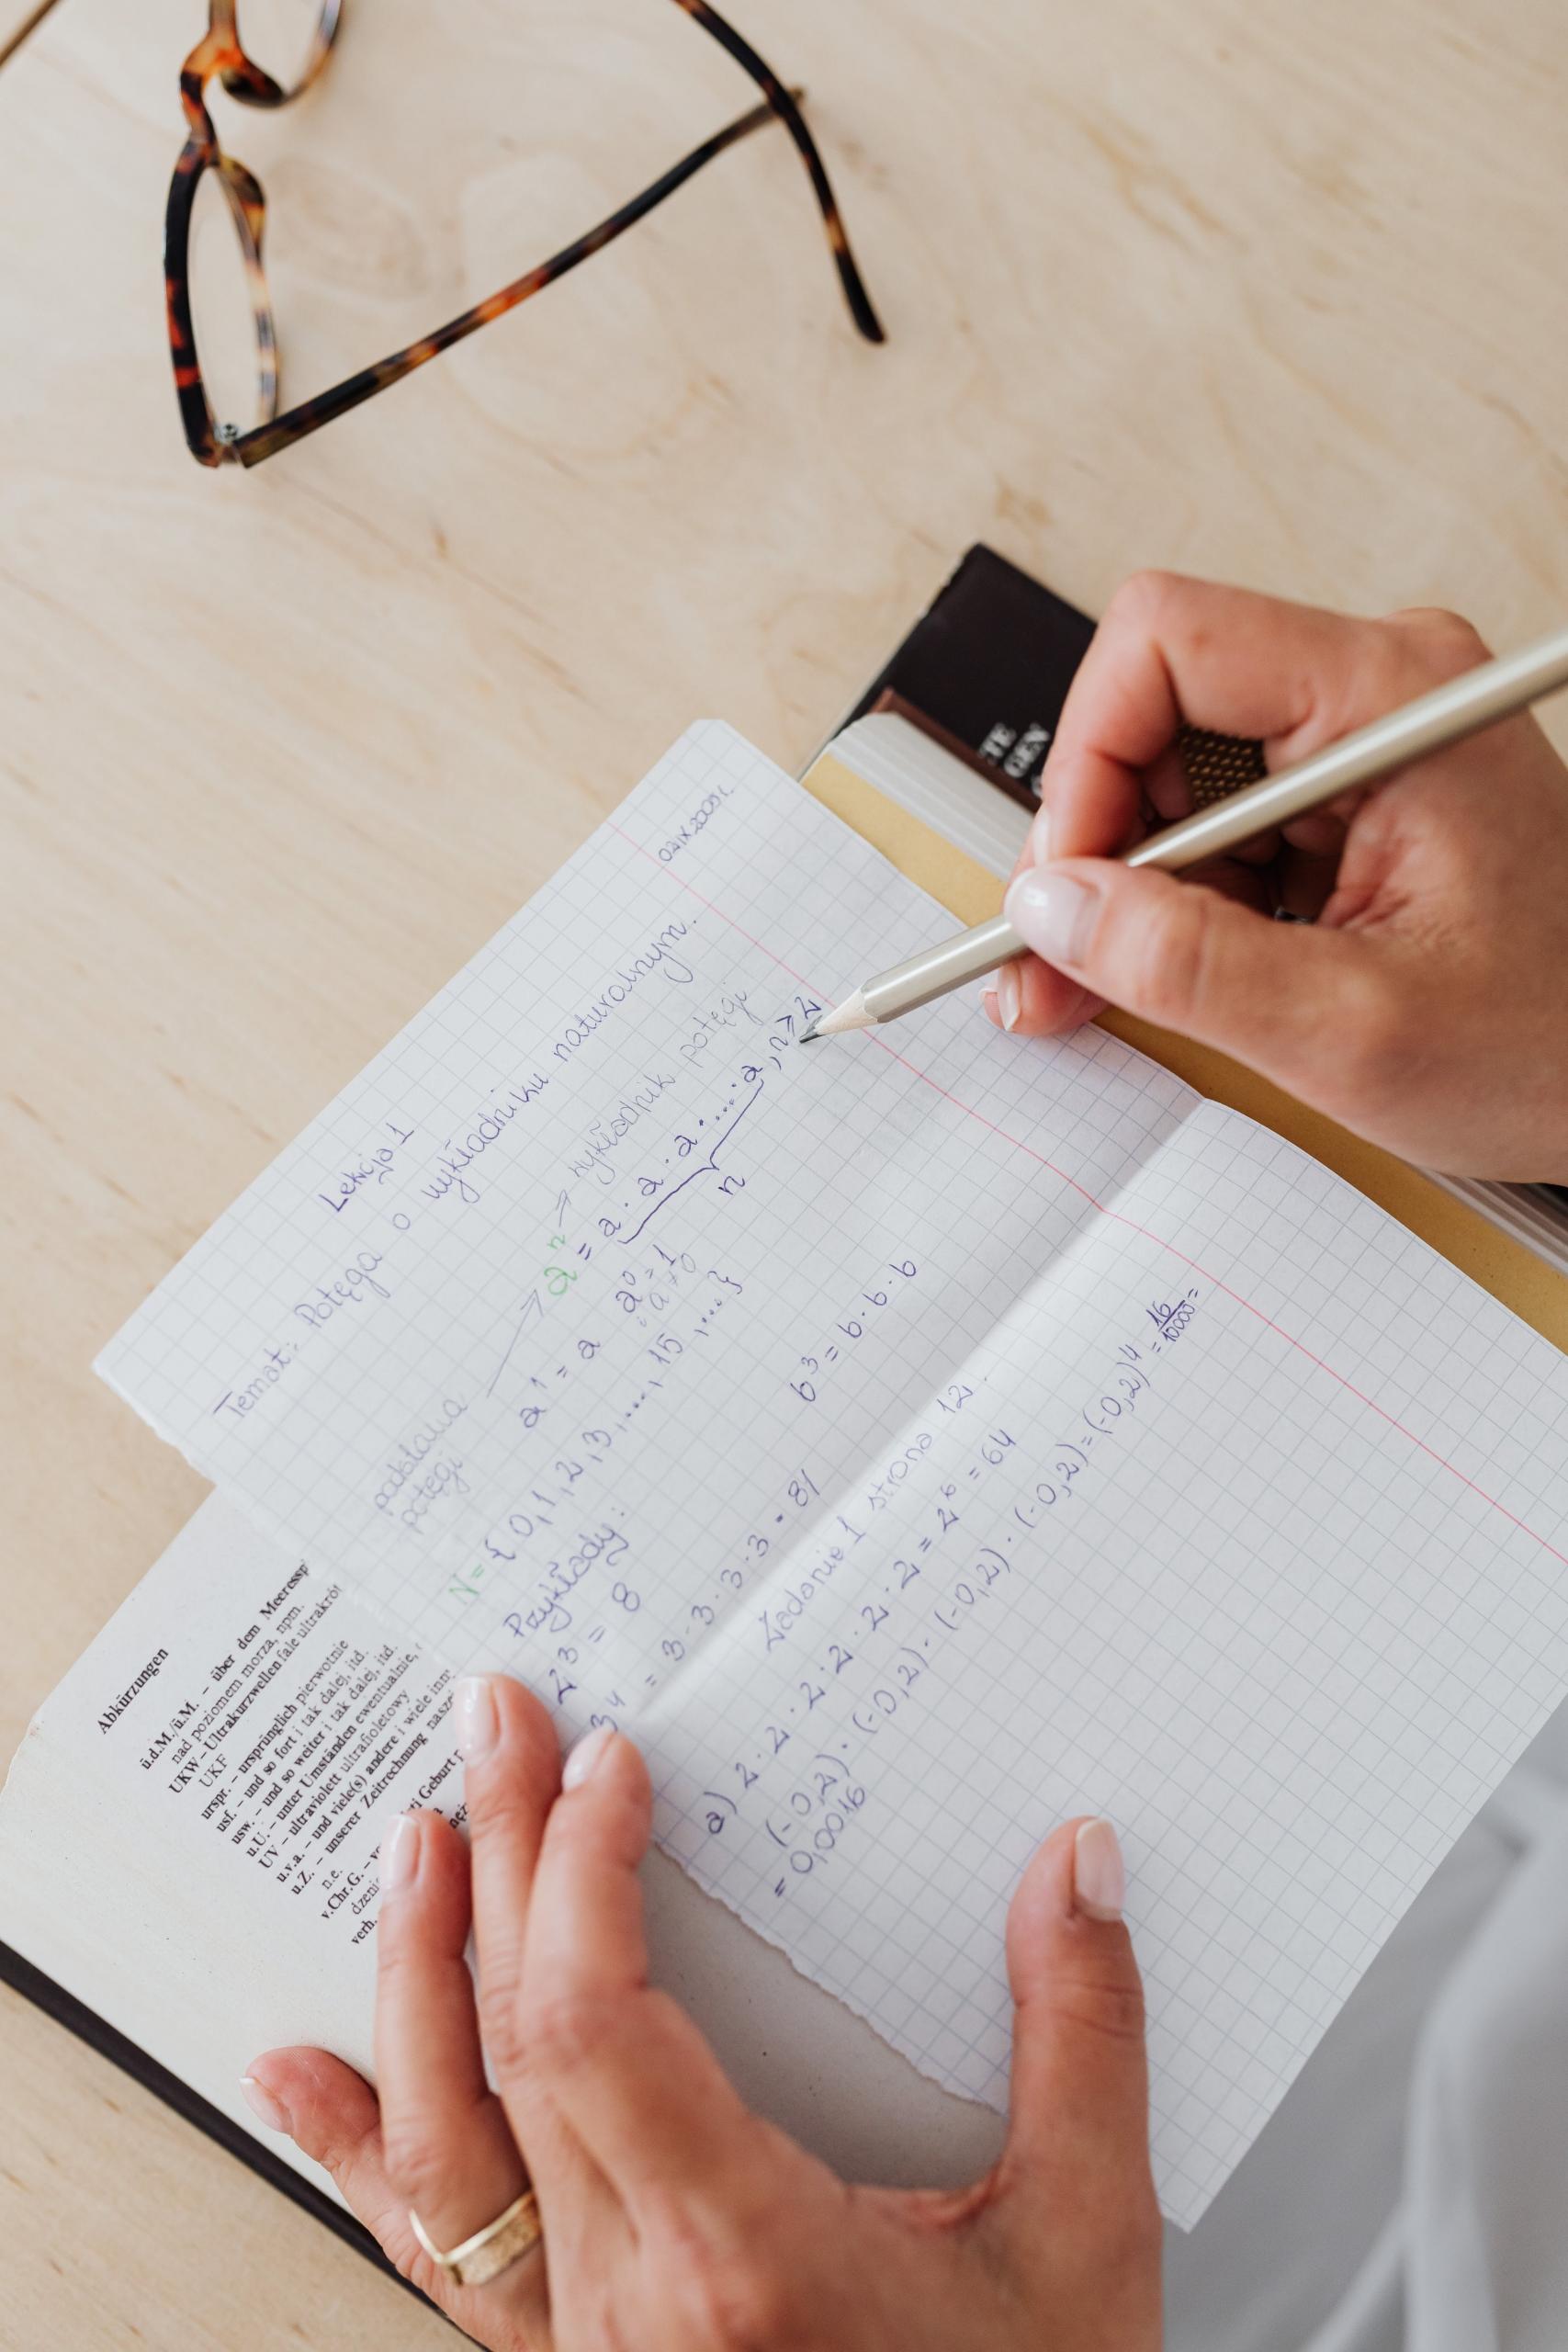 02 IX 2005r.
Lekcja 1
Temat: Potęga o wykładniku naturalnym.
wykładnik potęgi
aⁿ = a · a · a · .... · a, n ≥ 2
n
podstawa
potęgi
a¹ = a a⁰ = 1
a ≠ 0
N = {0, 1, 2, 3, ...., 15, ....}
Przykłady:
2³ = 8 b³ = b · b · b
3⁴ = 3 · 3 · 3 · 3 = 81
Zadanie 1 strona 12.
a) 2 · 2 · 2 · 2 · 2 · 2 = 2⁶ = 64
(-0,2) · (-0,2) · (-0,2) · (-0,2) = (-0,2)⁴ = 16/10000 =
= 0,0016
Abkürzungen
ü.d.M./ü.M. – über dem Meeressp
nad poziomem morza, npm.
UKW – Ultrakurzwellen fale ultrakrót
UKF
urspr. – ursprünglich pierwotnie
usf. – und so fort i tak dalej, itd.
usw. – und so weiter i tak dalej, itd.
u.U. – unter Umständen ewentualnie,
UV – ultraviolett ultrafioletowy
u.v.a. – und viele(s) andere i wiele inn
u.Z. – unserer Zeitrechnung nasze
n.e.
v.Chr.G. – Geburt
dzeni
verh.